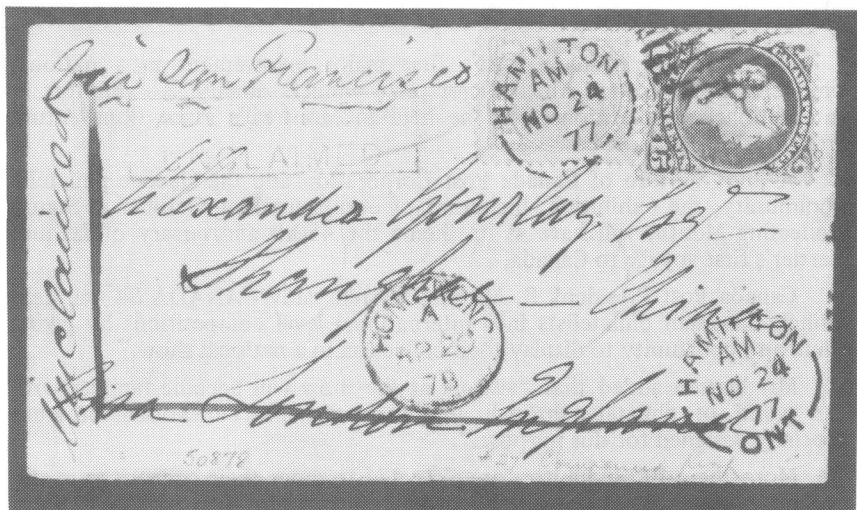 Via San Francisco
HAMILTON
AM
NO 24
77
Unclaimed
Alexander Gourlay Esqr
Shanghae — China
HONG KONG
A
AP 20
78
HAMILTON
AM
NO 24
77
ONT
Via London England
50878